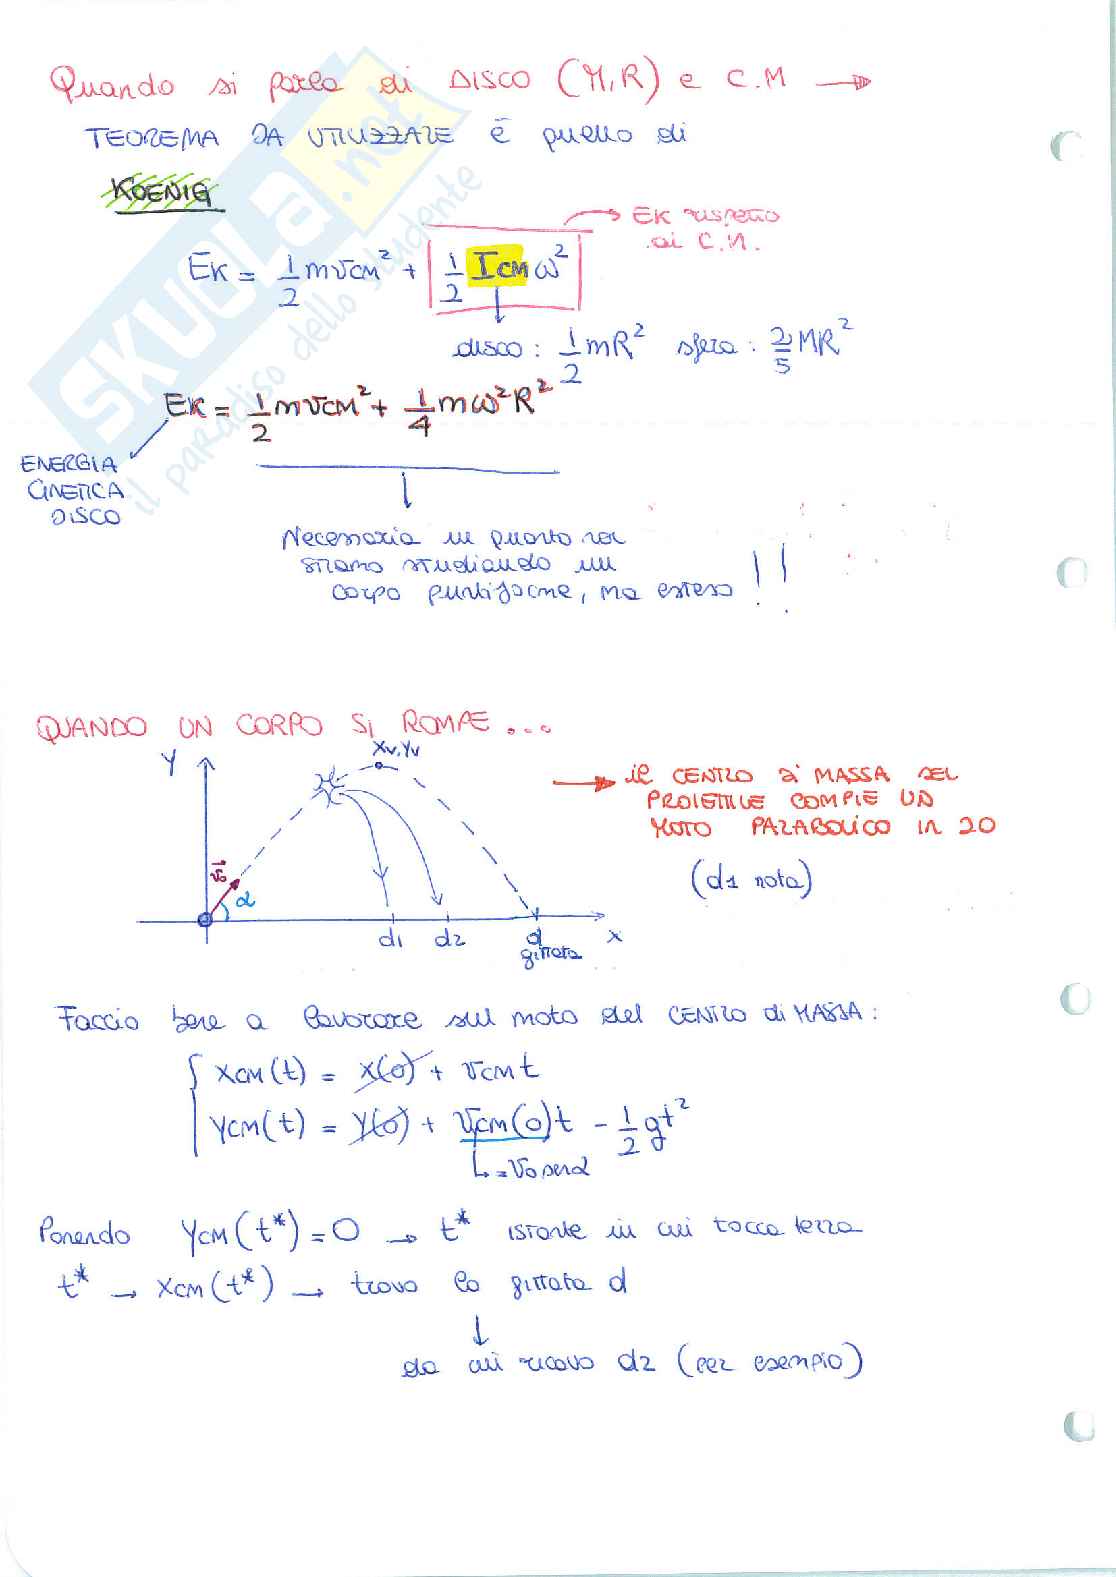 Quando si parla di DISCO (M,R) e C.M →
TEOREMA DA UTILIZZARE è quello di
KOENIG
SKUOLA.net
il paradiso dello studente
EK rispetto
al C.M.
EK = 1/2 mvCM² + 1/2 ICM ω²
disco: 1/2 mR² sfera: 2/5 MR²
EK = 1/2 mvCM² + 1/4 mω²R²
ENERGIA
CINETICA
DISCO
Necessaria in quanto non
stiamo studiando un
corpo puntiforme, ma esteso !!
QUANDO UN CORPO SI ROMPE ...
Y
Xv,Yv
v₀
α
d1 d2 d
gittata
X
→ il CENTRO di MASSA DEL
PROIETTILE COMPIE UN
MOTO PARABOLICO in 2D
(d1 nota)
Faccio bene a lavorare sul moto del CENTRO di MASSA:
XCM(t) = X(0) + vCMt
YCM(t) = Y(0) + vCM(0)t - 1/2 gt²
↳ = v₀senα
Ponendo YCM(t*) = 0 → t* istante in cui tocca terra
t* → XCM(t*) → trovo la gittata d
↓
da cui ricavo d2 (per esempio)